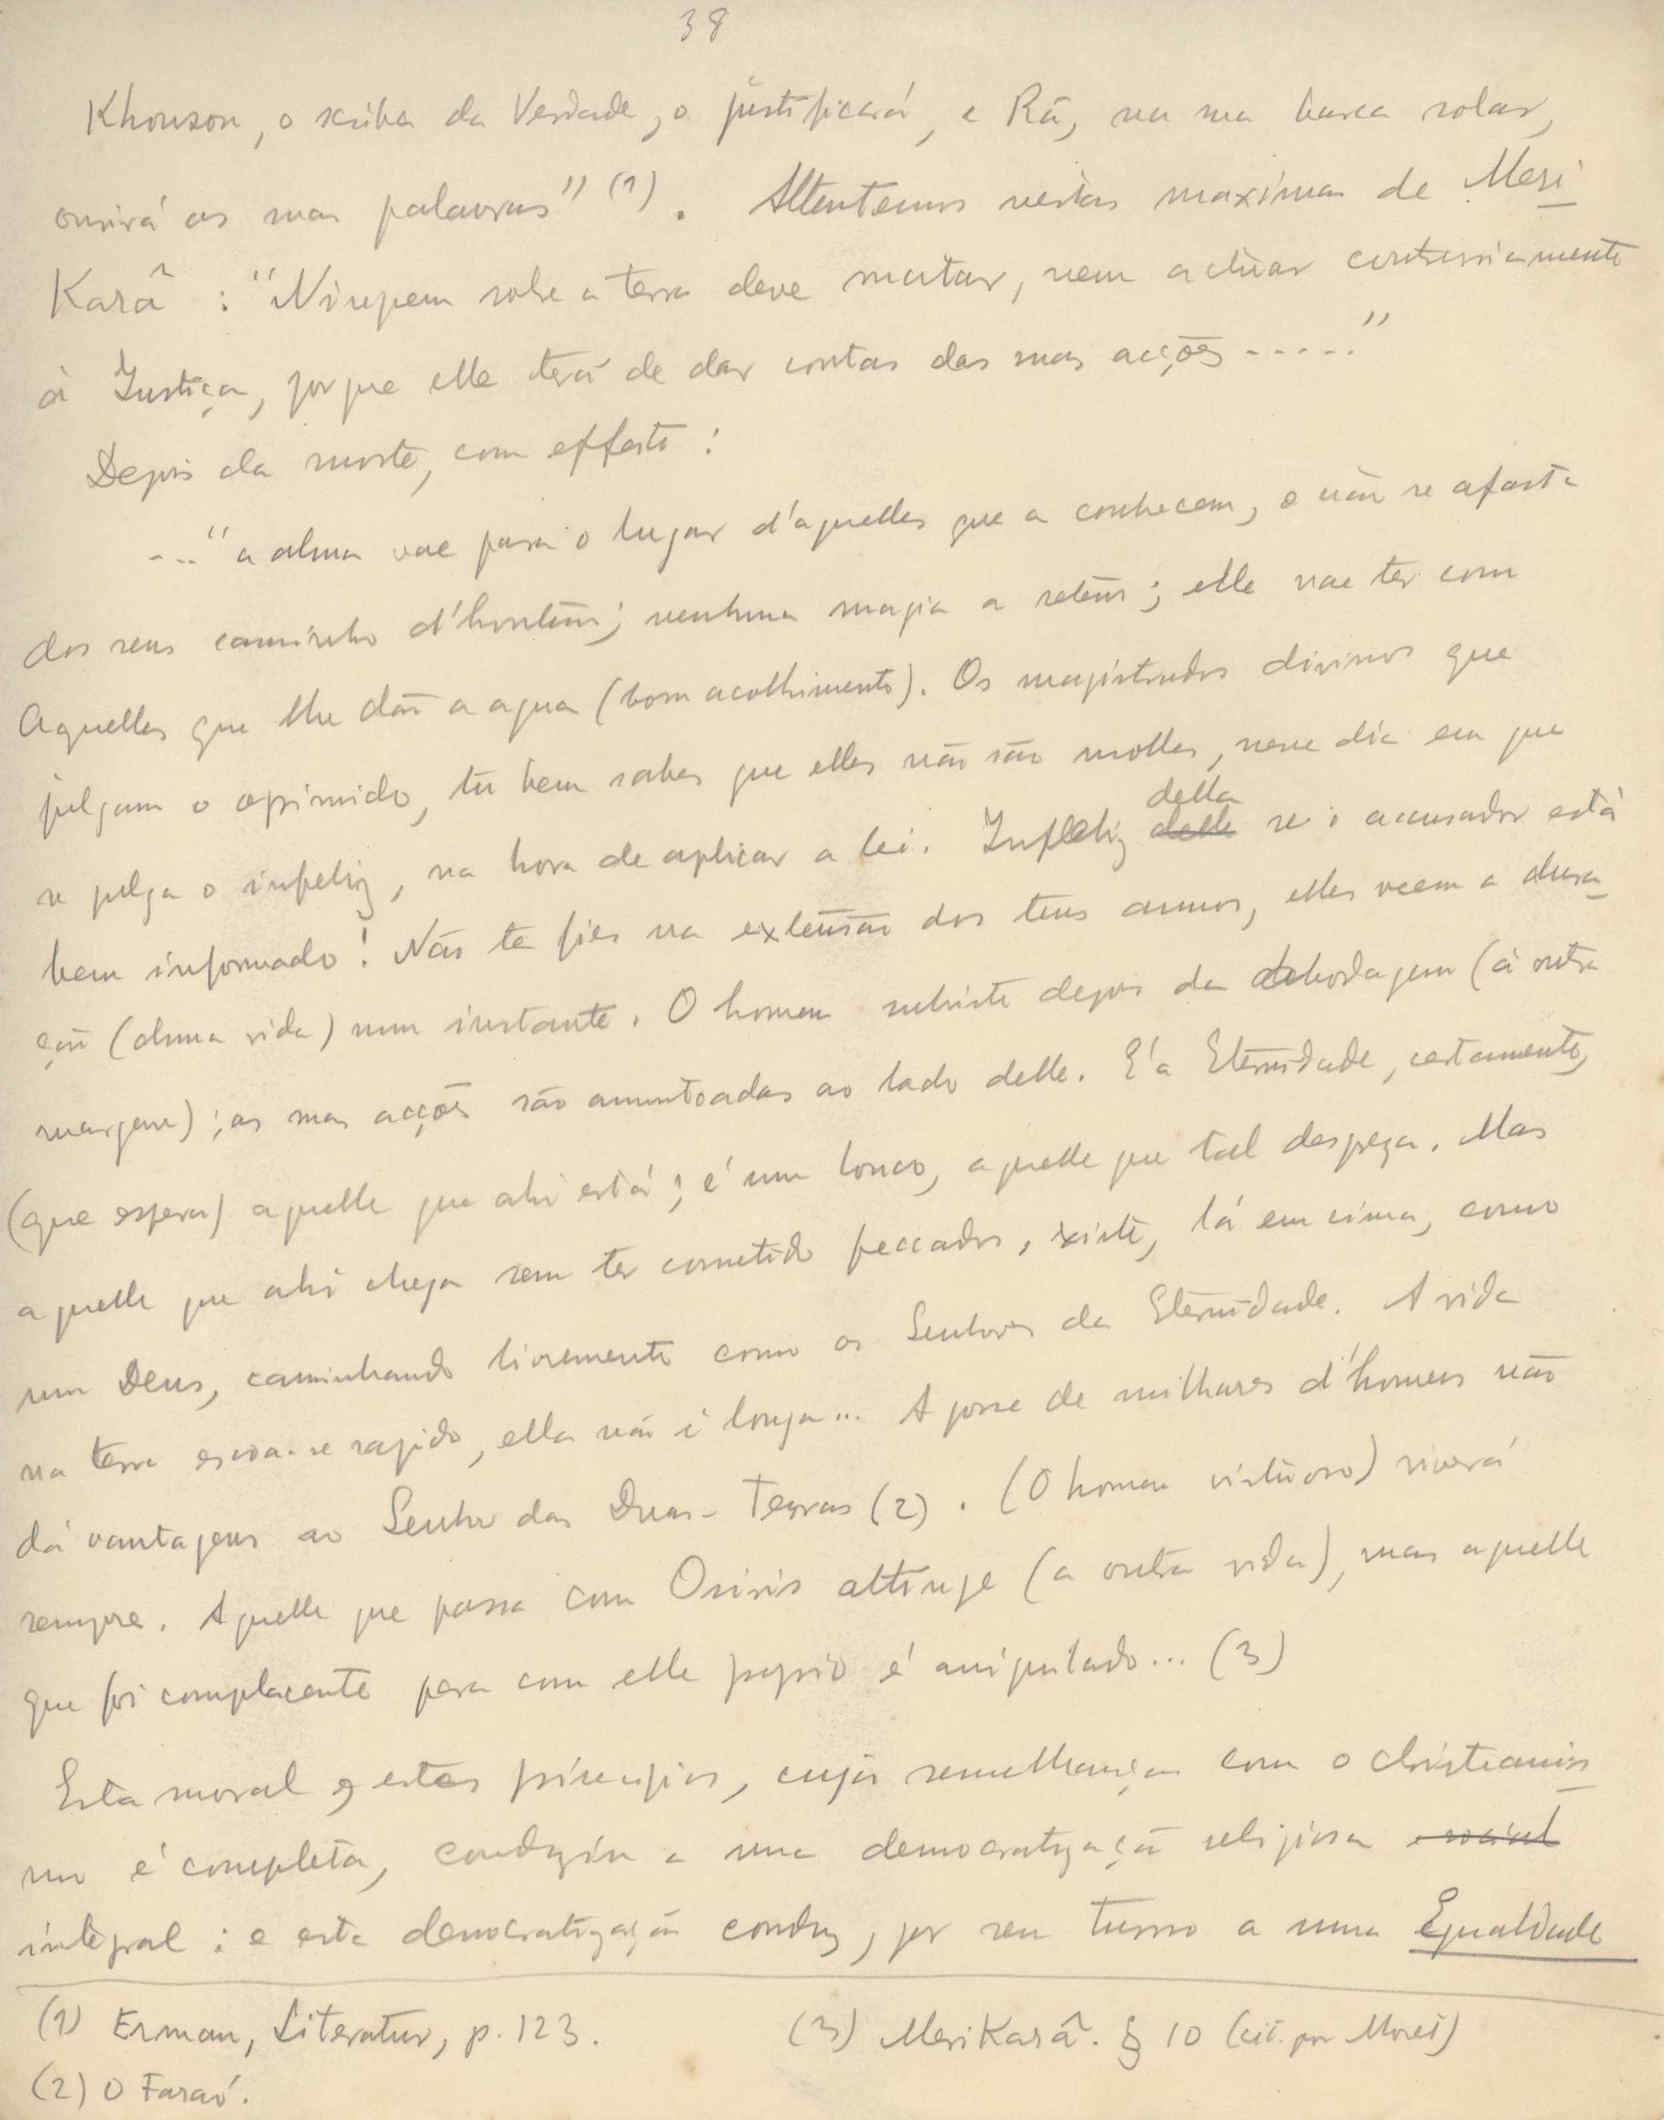 38
Khonson, o scriba da Verdade, o justificará, e Râ, na sua barca solar,
ouvirá as suas palavras" (1). Attentemos nestas maximas de Meri
Karâ : "Ninguem sobre a terra deve matar, nem actuar contrariamente
á Justiça, porque elle terá de dar contas das suas acções ....."
Depois da morte, com effeito :
..." a alma vae para o lugar d'aquelles que a conhecem, e não se afasta
dos seus caminho d'hontem; nenhuma magia a retem; elle vae ter com
Aquelles que lhe dão a agua (bom acolhimento). Os magistrados divinos que
julgam o oprimido, tu bem sabes que elles não são molles, nesse dia em que
se julga o infeliz, na hora de aplicar a lei. Infeliz delle della se o accusador está
bem informado! Não te fies na extensão dos teus annos, elles veem a dura
ção (duma vida) num instante. O homem subsiste depois da abordagem (á outra
margem); as suas acções são amontoadas ao lado delle. E' a Eternidade, certamente,
(que espera) aquelle que ahi está; é um louco, aquelle que tal despreza. Mas
aquelle que ahi chega sem ter cometido peccados, existe, lá em cima, como
um Deus, caminhando livremente como os Senhores da Eternidade. A vida
na terra escoa-se rapido, ella não é longa... A posse de milhares d'homens não
dá vantagens ao Senhor das Duas-Terras (2). (O homem virtuoso) viverá
sempre. Aquelle que passa com Osiris attinge (a outra vida), mas aquelle
que foi complacente para com elle proprio é aniquilado... (3)
Esta moral e estes principios, cuja semelhança com o christianis
mo é completa, conduziu a uma democratização religiosa e social
integral : e esta democratização conduz, por seu turno a uma Egualdade
(1) Erman, Literatur, p. 123.
(2) O Faraó.
(3) MeriKarâ. § 10 (cit. por Moret)